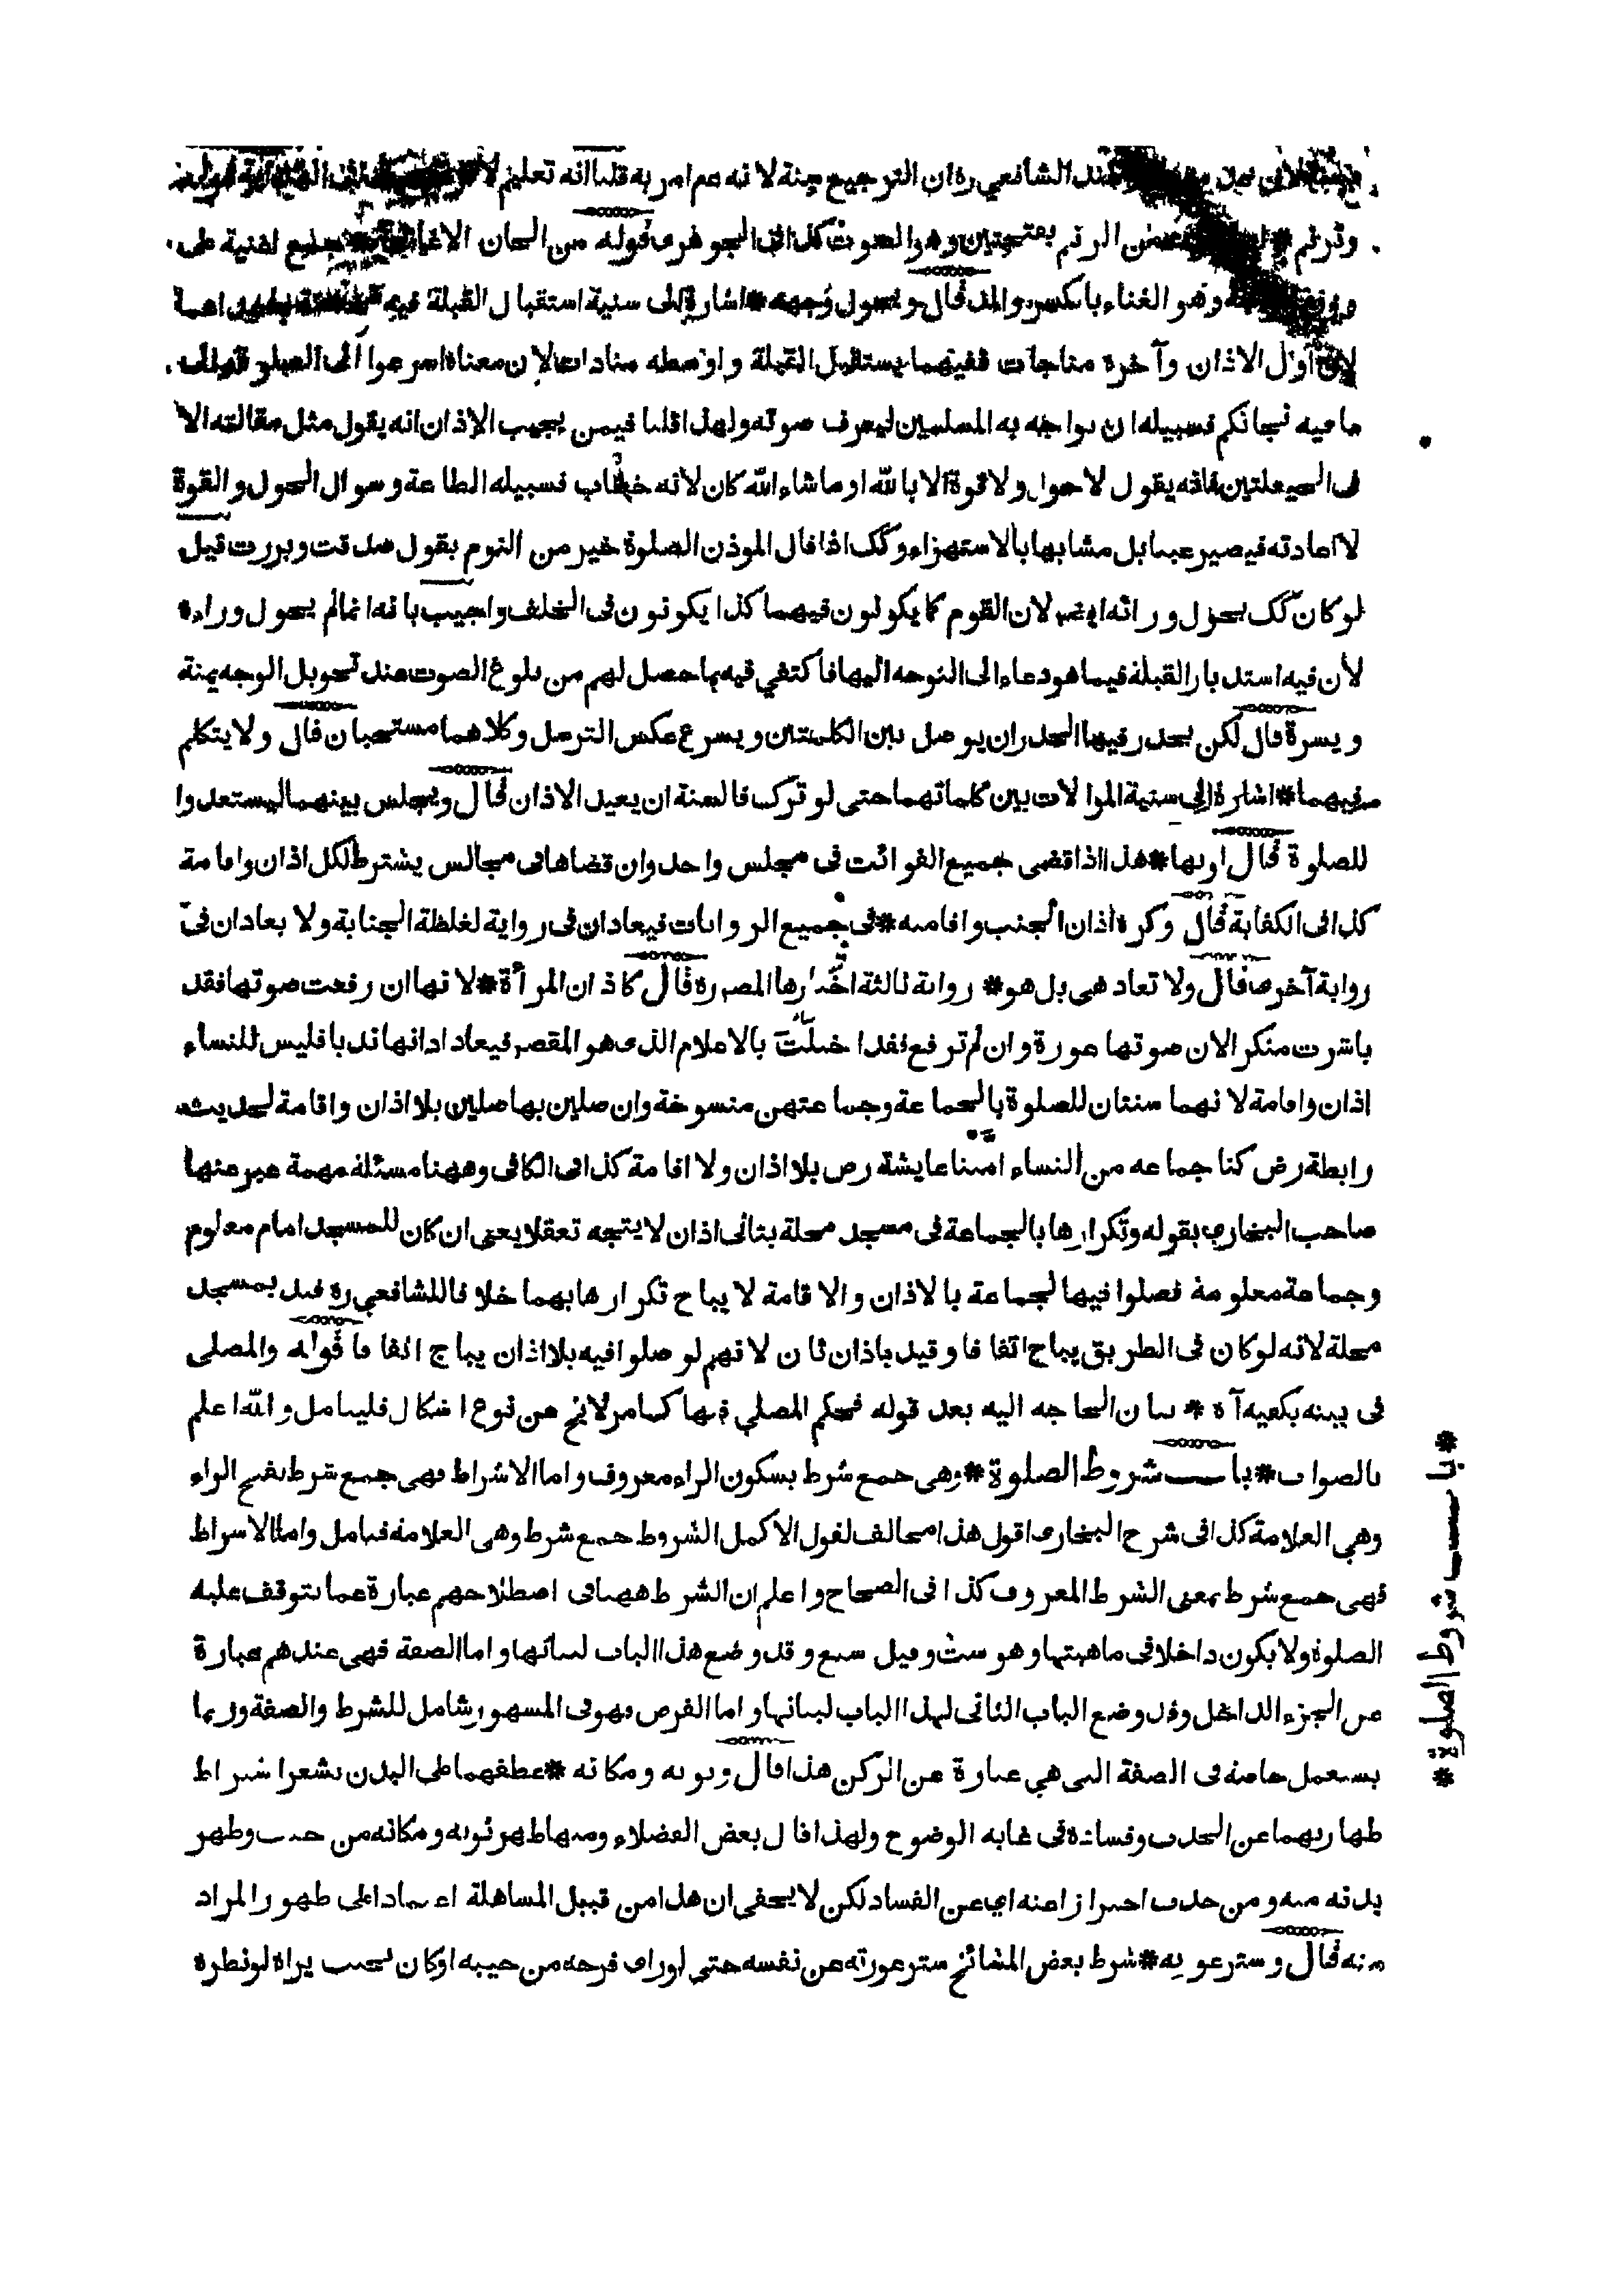 عند الشافعي ره ان الترجيع سنة لانه عم امر به قلنا انه تعليم
وترنم من الرنم بفتحتين وهو الصوت كذا في الجوهرى قوله من الحان الاغاني جمع اغنية على
وهو الغناء بالكسر والمد قال و يحول وجهه * اشارة الى سنية استقبال القبلة فيه
لان اول الاذان وآخره مناجات ففيهما يستقبل القبلة و اوسطه منادات لان معناه اسرعوا الى الصلوة
ما فيه نجاتكم فسبيله ان يواجه به المسلمين ليعرف صوته ولهذا قلنا فيمن يجيب الاذان انه يقول مثل مقالته الا
فى الحيعلتين فانه يقول لا حول ولا قوة الا بالله او ما شاء الله كان لانه خطاب فسبيله الطاعة وسوال الحول و القوة
لا اعادته فيصير عبثا بل مشابها بالاستهزاء وكك اذا قال الموذن الصلوة خير من النوم يقول صدقت و بررت قيل
لو كان كك يحول ورائه ايضا لان القوم كما يكونون فيهما كذا يكونون فى الخلف واجيب بانه انما لم يحول وراءه
لان فيه استدبار القبلة فيما هو دعاء الى التوجه اليها فاكتفي فيه بما حصل لهم من بلوغ الصوت عند تحويل الوجه يمنة
و يسرة قال لكن يحدر فيها الحدر ان يوصل بين الكلمتين و يسرع عكس الترسل وكلاهما مستحبان قال ولا يتكلم
فيهما * اشارة الى سنية الموالات بين كلماتهما حتى لو ترك فالسنة ان يعيد الاذان قال و يجلس بينهما ليستعدوا
للصلوة قال اوبها * هذا اذا قضى جميع الفوائت فى مجلس واحد وان قضاها فى مجالس يشترط لكل اذان واقامة
كذا فى الكفاية قال وكره اذان الجنب واقامته * فى جميع الروايات فيعادان فى رواية لغلظة الجنابة ولا يعادان فى
رواية آخرى قال ولا تعاد هى بل هو * رواية ثالثة اختارها المصره قال كاذان المرأة * لانها ان رفعت صوتها فقد
باشرت منكر الان صوتها عورة وان لم ترفع فقد اخلت بالاعلام الذى هو المقصر فيعاد اذانها ندبا فليس للنساء
اذان واقامة لانهما سنتان للصلوة بالجماعة وجماعتهن منسوخة وان صلين بها صلين بلا اذان واقامة لحديث
رابطة رض كنا جماعه من النساء امتنا عايشة رض بلا اذان ولا اقامة كذا فى الكافى وههنا مسئلة مهمة عبر عنها
صاحب البخاري بقوله وتكرارها بالجماعة فى مسجد محلة بثانى اذان لا يتجه تعقلا يعنى ان كان للمسجد امام معلوم
وجماعة معلومة فصلوا فيها لجماعة بالاذان والاقامة لا يباح تكرارها بهما خلافا للشافعي ره قيد بمسجد
محلة لانه لو كان فى الطريق يباح اتفاقا و قيد باذان ثان لانهم لو صلوا فيه بلا اذان يباح اتفاقا قوله والمصلى
فى بيته يكفيه آه * بيان الحاجه اليه بعد قوله فحكم المصلي فيها كما مر لا يخ عن نوع اشكال فليتامل و الله اعلم
بالصواب * باب شروط الصلوة * وهى جمع شرط بسكون الراء معروف واما الاشراط فهى جمع شرط بفتح الراء
وهي العلامة كذا فى شرح البخارى اقول هذا مخالف لقول الاكمل الشروط جمع شرط وهى العلامة فتامل واما الاسراط
فهى جمع شرط بمعنى الشرط المعروف كذا فى الصحاح و اعلم ان الشرط ههنا فى اصطلاحهم عبارة عما يتوقف عليه
الصلوة ولا يكون داخلا فى ماهيتها وهو ست وقيل سبع وقد وضع هذا الباب لبيانها و اما الصفة فهى عندهم عبارة
من الجزء الداخل وقد وضع الباب الثانى لهذا الباب لبيانها و اما الفرص فهو فى المشهور شامل للشرط والصفة وربما
يستعمل خاصة فى الصفة التى هي عبارة عن الركن هذا قال وثوبه ومكانه * عطفهما على البدن يشعر اشتراط
طهارتهما عن الحدث وفساده فى غايه الوضوح ولهذا قال بعض الفضلاء ومنها طهر ثوبه ومكانه من خبث وطهر
بدنه منه ومن حدث احترازا عنه اي عن الفساد لكن لا يخفى ان هذا من قبيل المساهلة اعتمادا على ظهور المراد
منه قال و ستر عورته * شرط بعض المشائخ ستر عورته عن نفسه حتى لو راى فرجه من جيبه او كان بحيث يراه لو نظره
* باب شروط الصلوة *